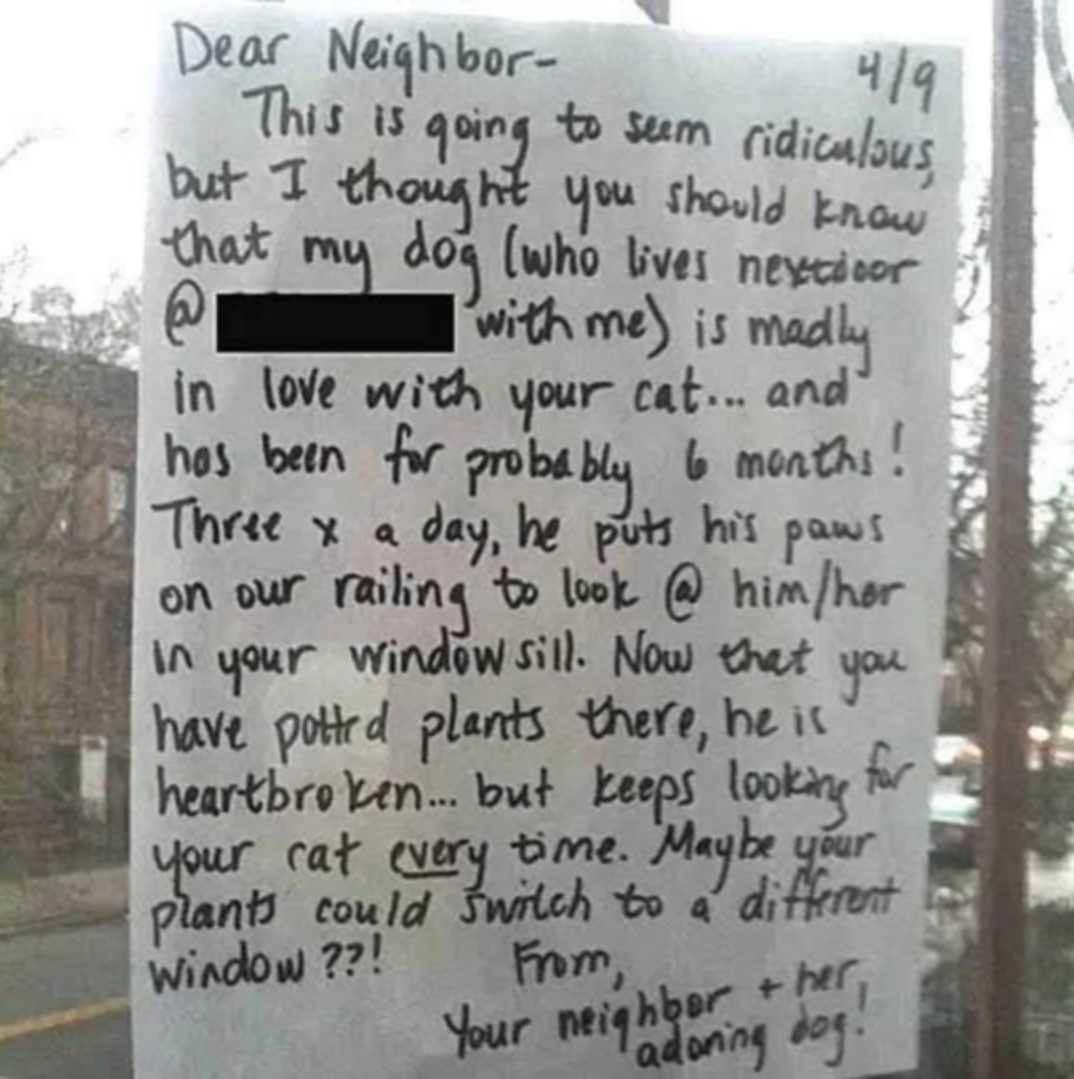 Dear Neighbor- 4/9
This is going to seem ridiculous,
but I thought you should know
that my dog (who lives nextdoor
@ with me) is madly
in love with your cat... and
has been for probably 6 months!
Three x a day, he puts his paws
on our railing to look @ him/her
in your windowsill. Now that you
have potted plants there, he is
heartbroken... but keeps looking for
your cat every time. Maybe your
plants could switch to a different
window ??!
From,
Your neighbor + her
adoring dog!